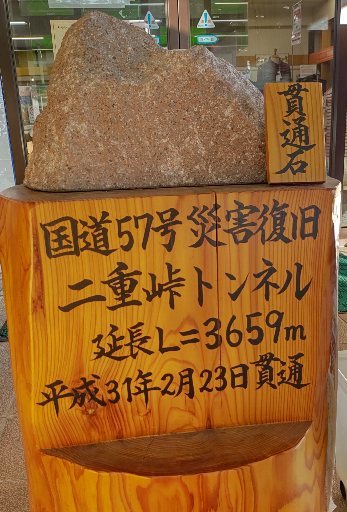 貫通石
国道57号災害復旧
二重峠トンネル
延長L=3659m
平成31年2月23日貫通